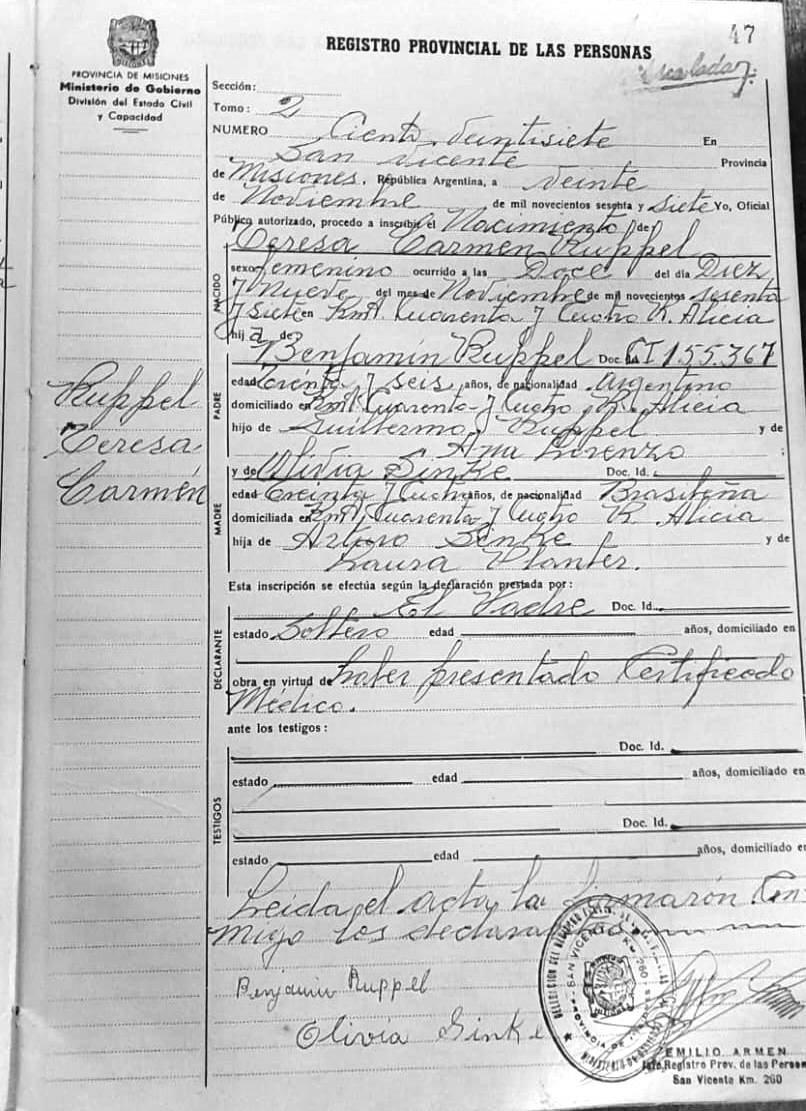 47
REGISTRO PROVINCIAL DE LAS PERSONAS
PROVINCIA DE MISIONES
Ministerio de Gobierno
División del Estado Civil
y Capacidad
Sección:
Tomo: 2
NUMERO Ciento Veintisiete En
San Vicente Provincia
de Misiones. República Argentina, a Veinte
de Noviembre de mil novecientos sesenta y Siete Yo, Oficial
Público autorizado, procedo a inscribir el Nacimiento de
Teresa Carmen Ruppel
NACIDO
sexo femenino ocurrido a las Doce del día Diez
y Nueve del mes de Noviembre de mil novecientos sesenta
y Siete en Km. Cuarenta y Cuatro R. Alicia
hij a de
Benjamin Ruppel Doc. Id. CI 155.367
PADRE
edad Treinta y seis años, de nacionalidad Argentino
domiciliado en Km. Cuarenta y Cuatro R. Alicia
hijo de Guillermo Ruppel y de
Ana Lorenzo ;
Ruppel
Teresa
Carmén
MADRE
y de Olivia Sinke Doc. Id. :
edad Treinta y Cuatro años, de nacionalidad Brasileña
domiciliada en Km. Cuarenta y Cuatro R. Alicia
hija de Arturo Senke y de
Laura Planter.
Esta inscripción se efectúa según la declaración prestada por:
El Padre Doc. Id.
DECLARANTE
estado Soltero edad años, domiciliado en
obra en virtud de haber presentado Certificado
Médico.
ante los testigos:
TESTIGOS
Doc. Id.
estado edad años, domiciliado en
Doc. Id.
estado edad años, domiciliado en
Leida el acta la firmarón Con-
migo los
Benjamin Ruppel
Olivia Sinke
SAN VICENTE KM. 260
PROVINCIA DE MISIONES
EMILIO ARMEN
Registro Prov. de las Person
San Vicente Km. 260